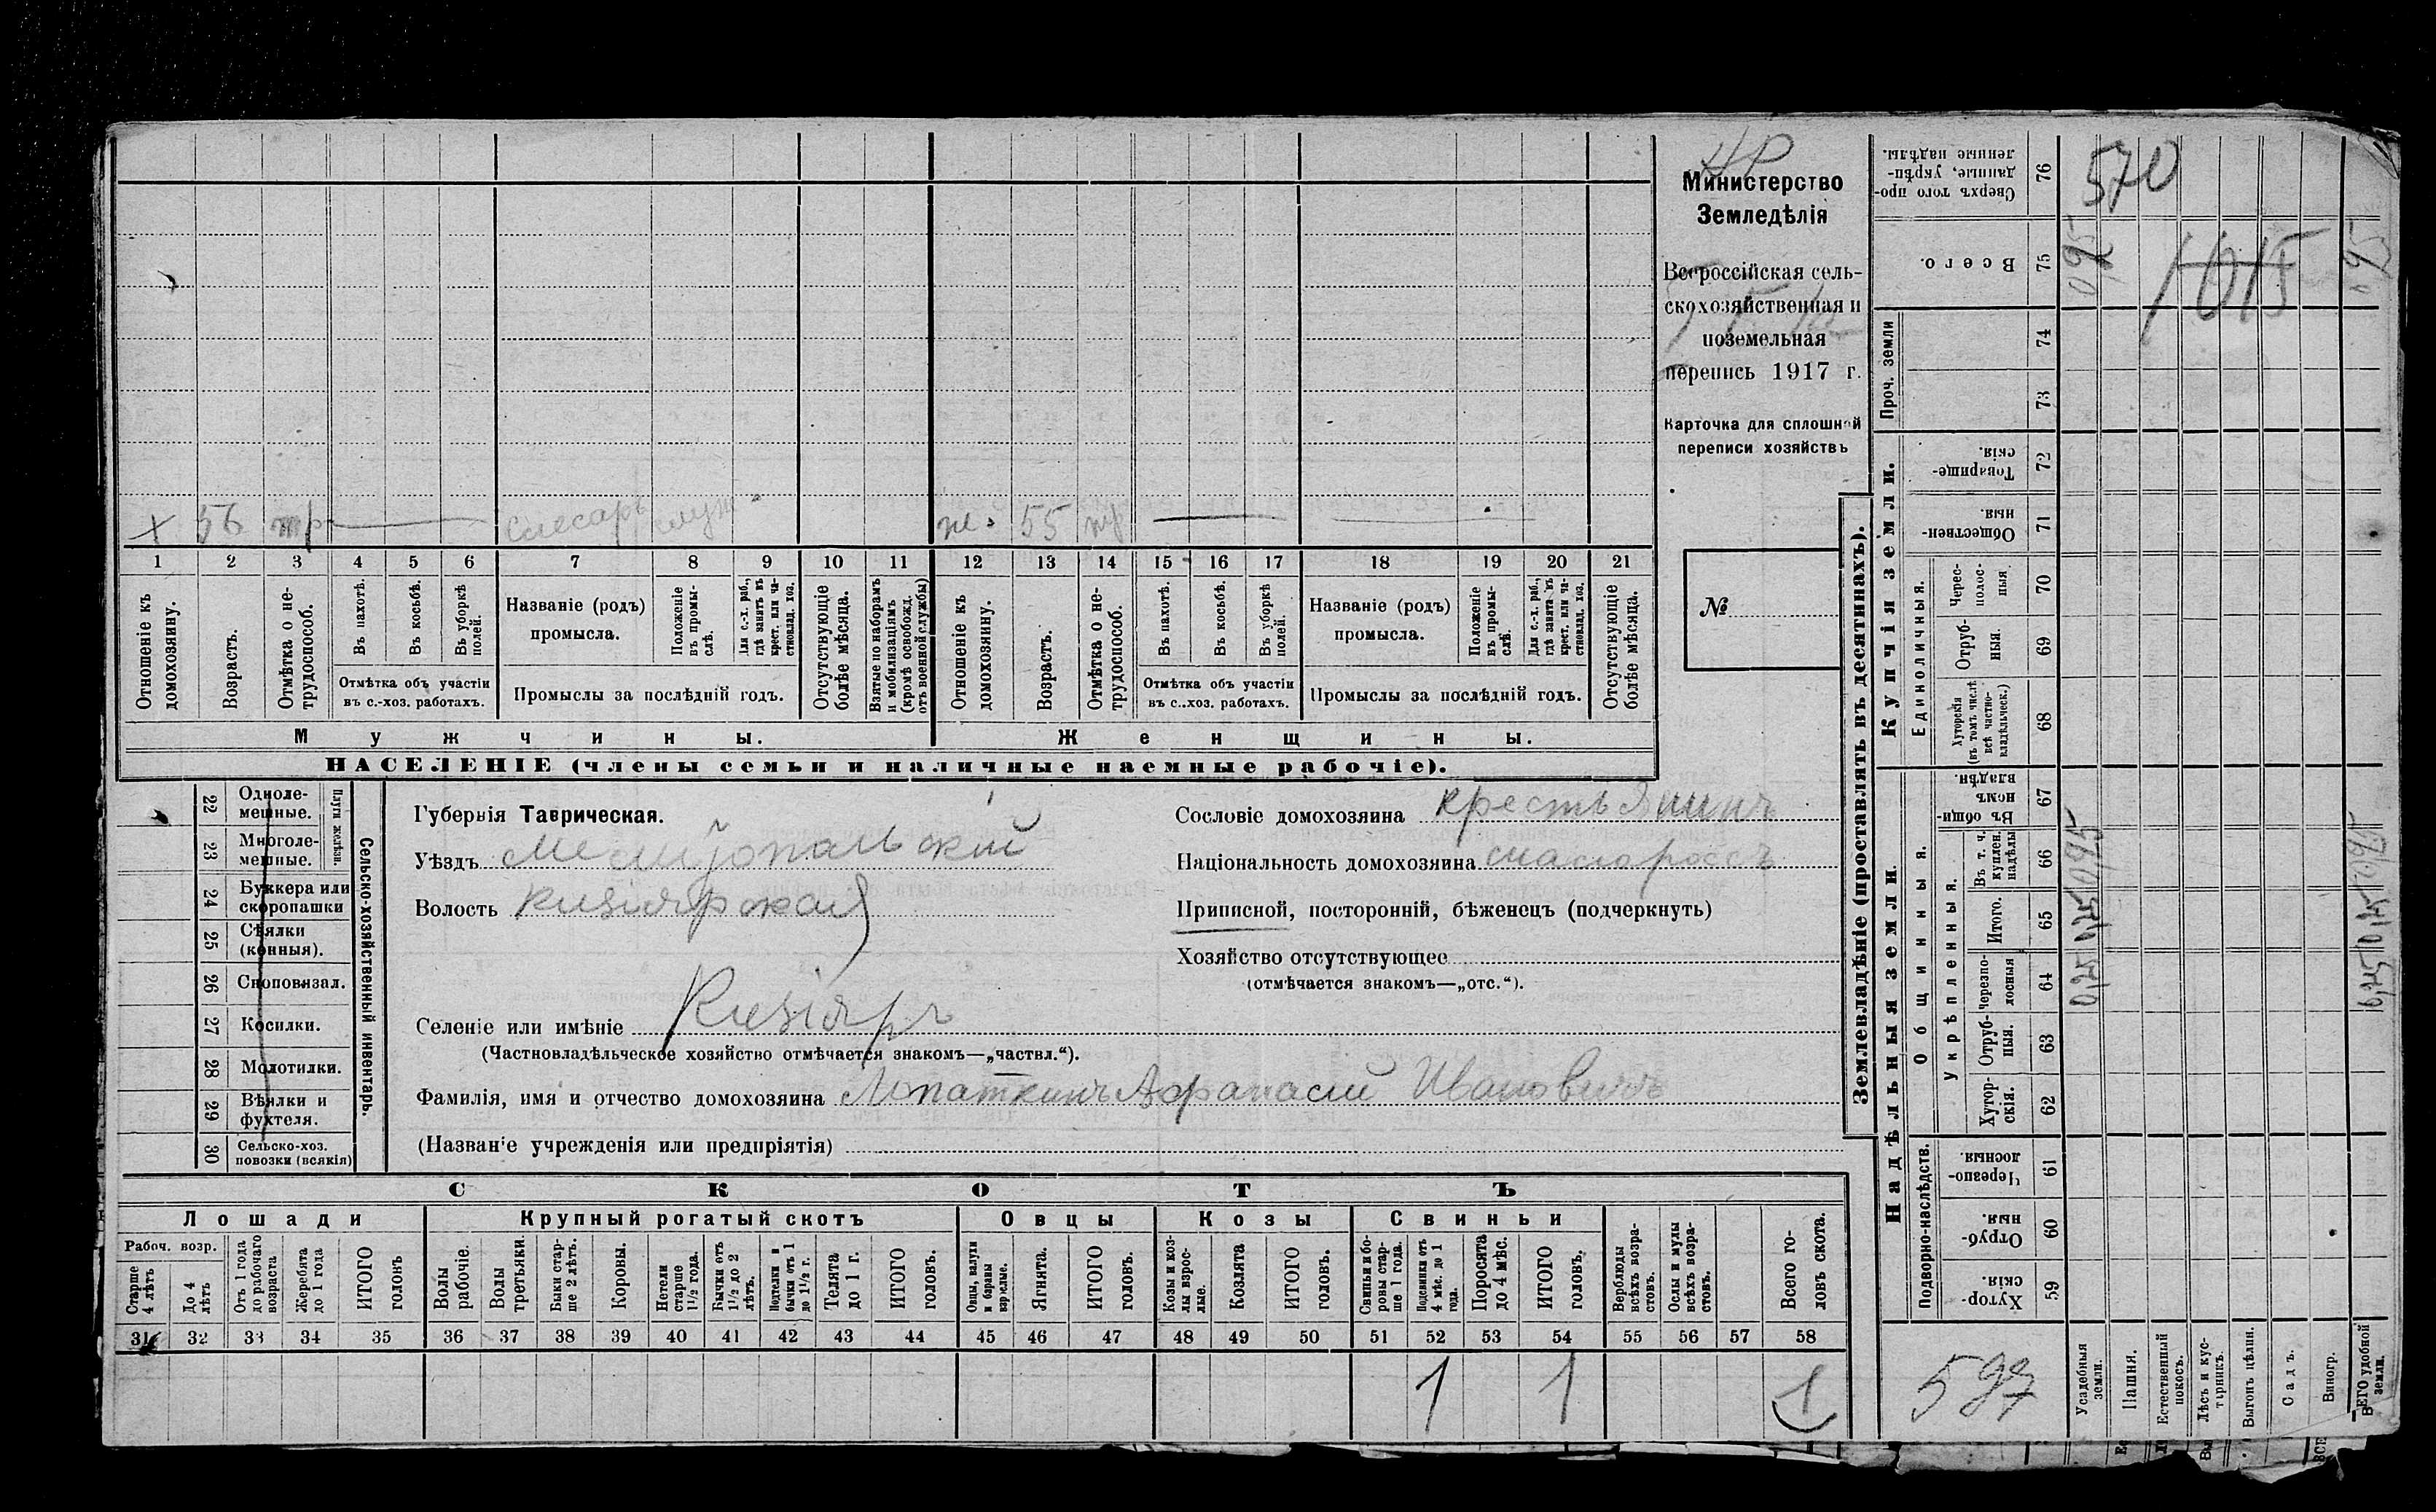 НР
Министерство
Земледѣлія
Всероссійская сель-
скохозяйственная и
поземельная
перепись 1917 г.
Карточка для сплошной
переписи хозяйствъ
№
х 56 тр слесарь служ
ж. 55 тр
1 2 3 4 5 6 7 8 9 10 11 12 13 14 15 16 17 18 19 20 21
Отношеніе къ домохозяину.
Возрастъ.
Отмѣтка о не-трудоспособ.
Въ пахотѣ.
Въ косьбѣ.
Въ уборкѣ полей.
Отмѣтка объ участіи
въ с.-хоз. работахъ.
Названіе (родъ)
промысла.
Положеніе въ промы-слѣ.
Для с.-х. раб., гдѣ занятъ въ крест. или ча-стновлад. хоз.
Промыслы за послѣдній годъ.
Отсутствующіе болѣе мѣсяца.
Взятые по наборамъ и мобилизаціямъ (кромѣ освобожд. отъ военной службы)
Отношеніе къ домохозяину.
Возрастъ.
Отмѣтка о не-трудоспособ.
Въ пахотѣ.
Въ косьбѣ.
Въ уборкѣ полей.
Отмѣтка объ участіи
въ с..хоз. работахъ.
Названіе (родъ)
промысла.
Положеніе въ промы-слѣ.
Для с.-х. раб., гдѣ занята въ крест. или ча-стновлад. хоз.
Промыслы за послѣдній годъ.
Отсутствующіе болѣе мѣсяца.
Мужчины.
Женщины.
НАСЕЛЕНІЕ (члены семьи и наличные наемные рабочіе).
22 Одноле-мешные.
23 Многоле-мешные.
Плуги желѣзн.
24 Буккера или скоропашки
25 Сѣялки (конныя).
26 Сноповязал.
27 Косилки.
28 Молотилки.
29 Вѣялки и фухтеля.
30 Сельско-хоз. повозки (всякія)
Сельско-хозяйственный инвентарь.
Губернія Таврическая.
Уѣздъ Мелитопольскій
Волость Кизіярская
Селеніе или имѣніе Кизіяръ
(Частновладѣльческое хозяйство отмѣчается знакомъ—„частвл.“).
Фамилія, имя и отчество домохозяина Лопаткинъ Афанасій Ивановичъ
(Названіе учрежденія или предпріятія)
Сословіе домохозяина крестьянинъ
Національность домохозяина малороссъ
Приписной, посторонній, бѣженецъ (подчеркнуть)
Хозяйство отсутствующее
(отмѣчается знакомъ—„отс.“).
СКОТЪ
Лошади
Крупный рогатый скотъ
Овцы
Козы
Свиньи
Рабоч. возр.
Старше 4 лѣтъ
До 4 лѣтъ
Отъ 1 года до рабочаго возраста
Жеребята до 1 года
ИТОГО головъ
Волы рабочіе.
Волы третьяки.
Быки стар-ше 2 лѣтъ.
Коровы.
Нетели старше 1½ года.
Бычки отъ 1½ до 2 лѣтъ.
Подтелки и бычки отъ 1 до 1½ г.
Телята до 1 г.
ИТОГО головъ.
Овцы, валухи и бараны взрослые.
Ягнята.
ИТОГО головъ.
Козы и коз-лы взрос-лые.
Козлята
ИТОГО головъ.
Свиньи и бо-ровы стар-ше 1 года.
Подсвинки отъ 4 мѣс. до 1 года.
Поросята до 4 мѣс.
ИТОГО головъ.
Верблюды всѣхъ возра-стовъ.
Ослы и мулы всѣхъ возра-стовъ.
Всего го-ловъ скота.
31 32 33 34 35 36 37 38 39 40 41 42 43 44 45 46 47 48 49 50 51 52 53 54 55 56 57 58
1 1 1
Землевладѣніе (проставлять въ десятинахъ).
Надѣльныя земли.
Купчія земли.
Проч. земли
Подворно-наслѣдств.
Общинныя.
Укрѣпленныя.
Единоличныя.
Сверхъ того про-данные, укрѣп-ленные надѣлы. 76
Всего. 75
74
73
Товарище-скія. 72
Обществен-ныя. 71
Черес-полос-ныя 70
Отруб-ныя. 69
Хуторскія (въ томъ числѣ всѣ частно-владѣльческ.) 68
Въ общи-номъ владѣн. 67
Въ т. ч. куплен. надѣлы 66
Итого. 65
Черезпо-лосныя 64
Отруб-ныя. 63
Хутор-скія. 62
Черезпо-лосныя. 61
Отруб-ныя. 60
Хутор-скія. 59
570
1015
0,25 0,25 0,95
597
Усадебныя земли.
Пашня.
Естественный покосъ.
Лѣсъ и кус-тарникъ.
Выгонъ цѣлин.
Садъ.
Виногр.
ВСЕГО удобной земли.